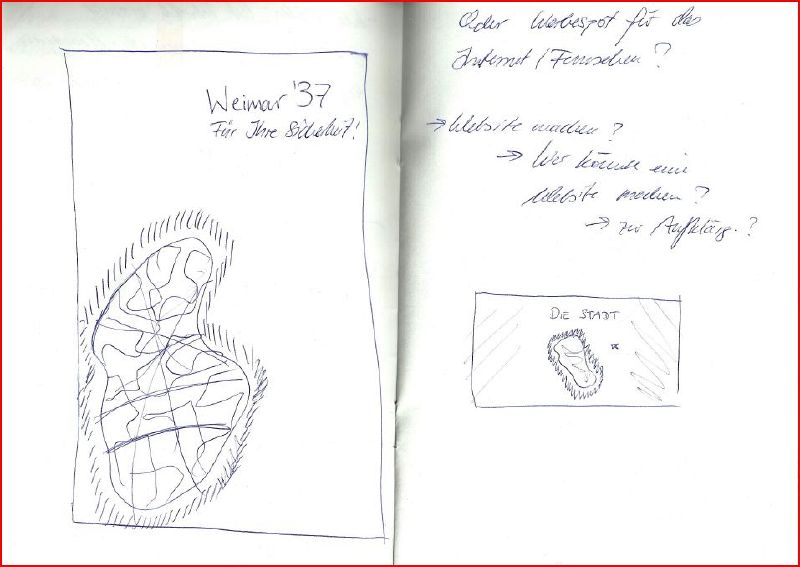 Weimar '37
Für Ihre Sicherheit!
Oder Werbespot für das
Internet / Fernsehen?
→ Website machen?
→ Wer könnte eine
Website machen?
→ zur Aufklärg.?
DIE STADT